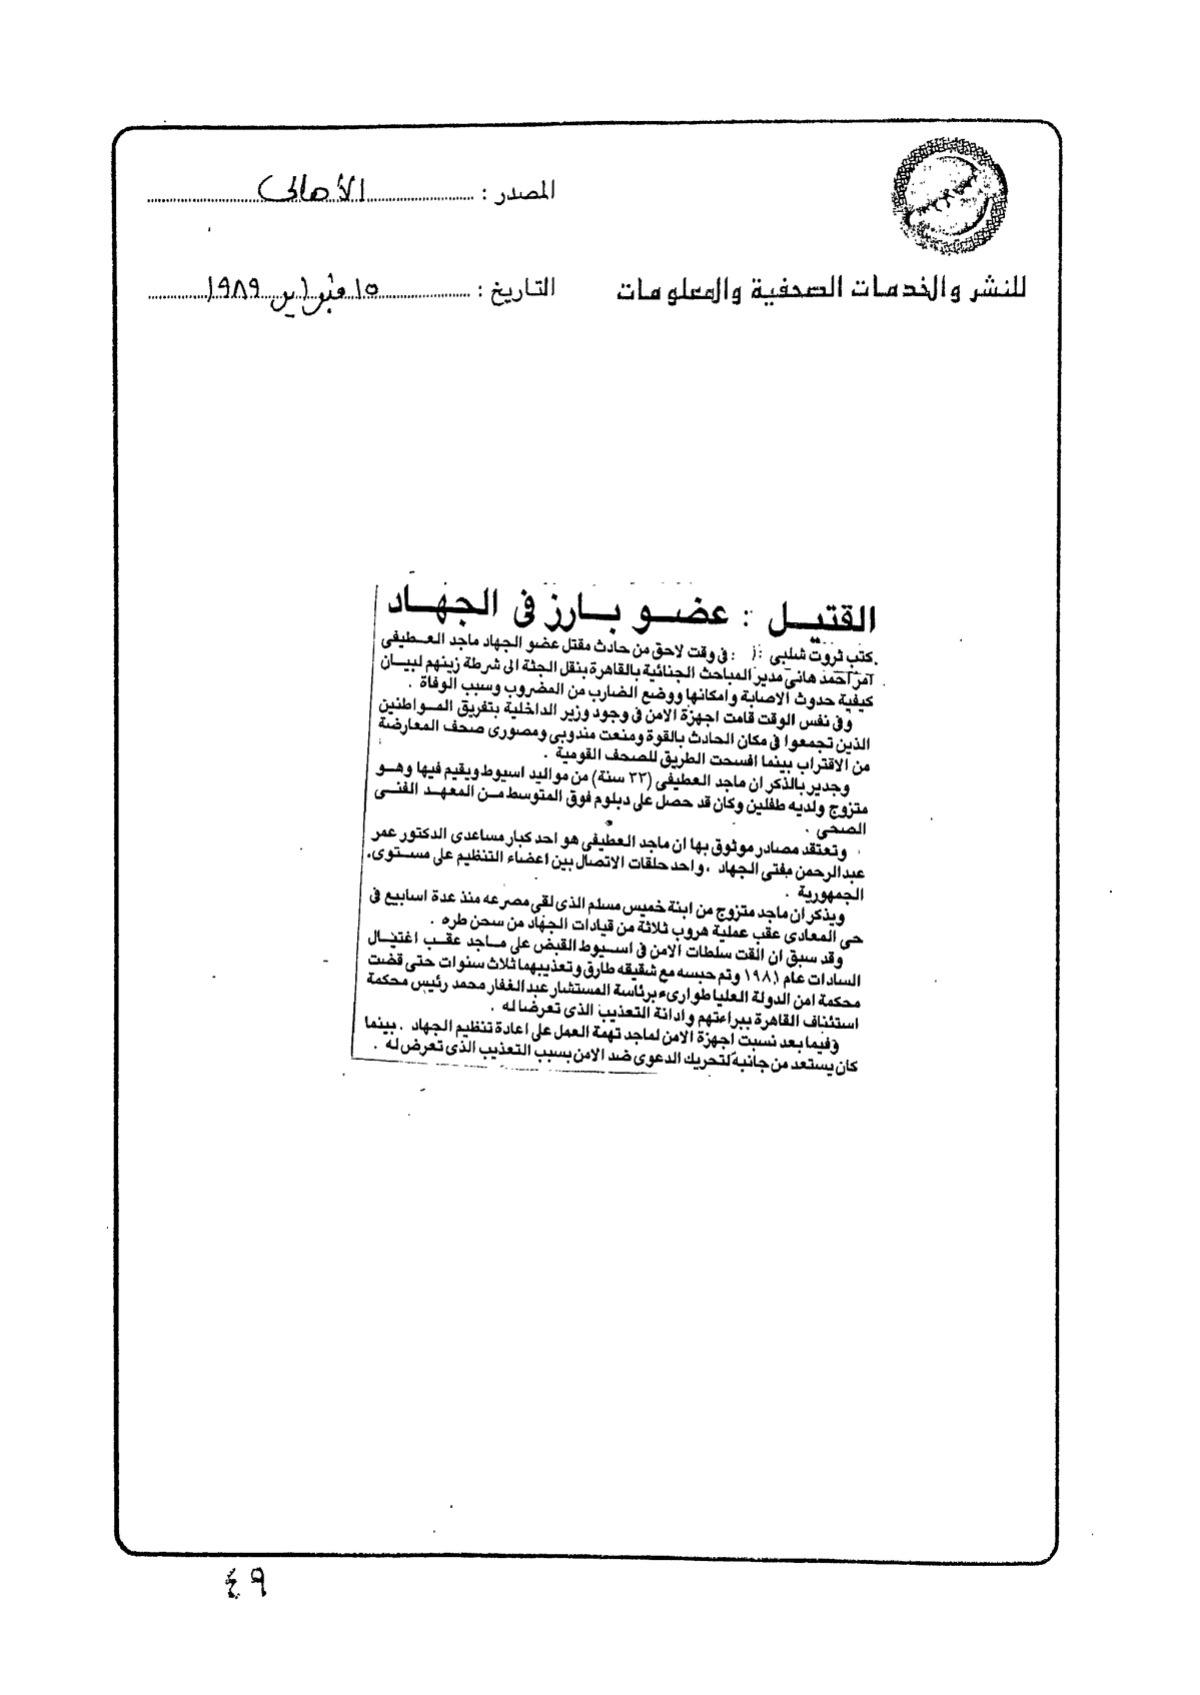 المصدر : الأهالى
للنشر والخدمات الصحفية والمعلومات
التاريخ : ١٥ فبراير ١٩٨٩
القتيل : عضو بارز فى الجهاد
كتب ثروت شلبى : فى وقت لاحق من حادث مقتل عضو الجهاد ماجد العطيفى
أمر أحمد هانى مدير المباحث الجنائية بالقاهرة بنقل الجثة الى شرطة زينهم لبيان
كيفية حدوث الاصابة وامكانها ووضع الضارب من المضروب وسبب الوفاة .
وفى نفس الوقت قامت اجهزة الامن فى وجود وزير الداخلية بتفريق المواطنين
الذين تجمعوا فى مكان الحادث بالقوة ومنعت مندوبى ومصورى صحف المعارضة
من الاقتراب بينما افسحت الطريق للصحف القومية .
وجدير بالذكر ان ماجد العطيفى (٣٣ سنة) من مواليد اسيوط ويقيم فيها وهو
متزوج ولديه طفلين وكان قد حصل على دبلوم فوق المتوسط من المعهد الفنى
الصحى .
وتعتقد مصادر موثوق بها ان ماجد العطيفى هو احد كبار مساعدى الدكتور عمر
عبدالرحمن مفتى الجهاد ، واحد حلقات الاتصال بين اعضاء التنظيم على مستوى
الجمهورية .
ويذكر ان ماجد متزوج من ابنة خميس مسلم الذى لقى مصرعه منذ عدة اسابيع فى
حى المعادى عقب عملية هروب ثلاثة من قيادات الجهاد من سجن طره .
وقد سبق ان القت سلطات الامن فى اسيوط القبض على ماجد عقب اغتيال
السادات عام ١٩٨١ وتم حبسه مع شقيقه طارق وتعذيبهما ثلاث سنوات حتى قضت
محكمة امن الدولة العليا طوارىء برئاسة المستشار عبدالغفار محمد رئيس محكمة
استئناف القاهرة ببراءتهم وادانة التعذيب الذى تعرضا له .
وفيما بعد نسبت اجهزة الامن لماجد تهمة العمل على اعادة تنظيم الجهاد . بينما
كان يستعد من جانبه لتحريك الدعوى ضد الامن بسبب التعذيب الذى تعرض له .
٤٩